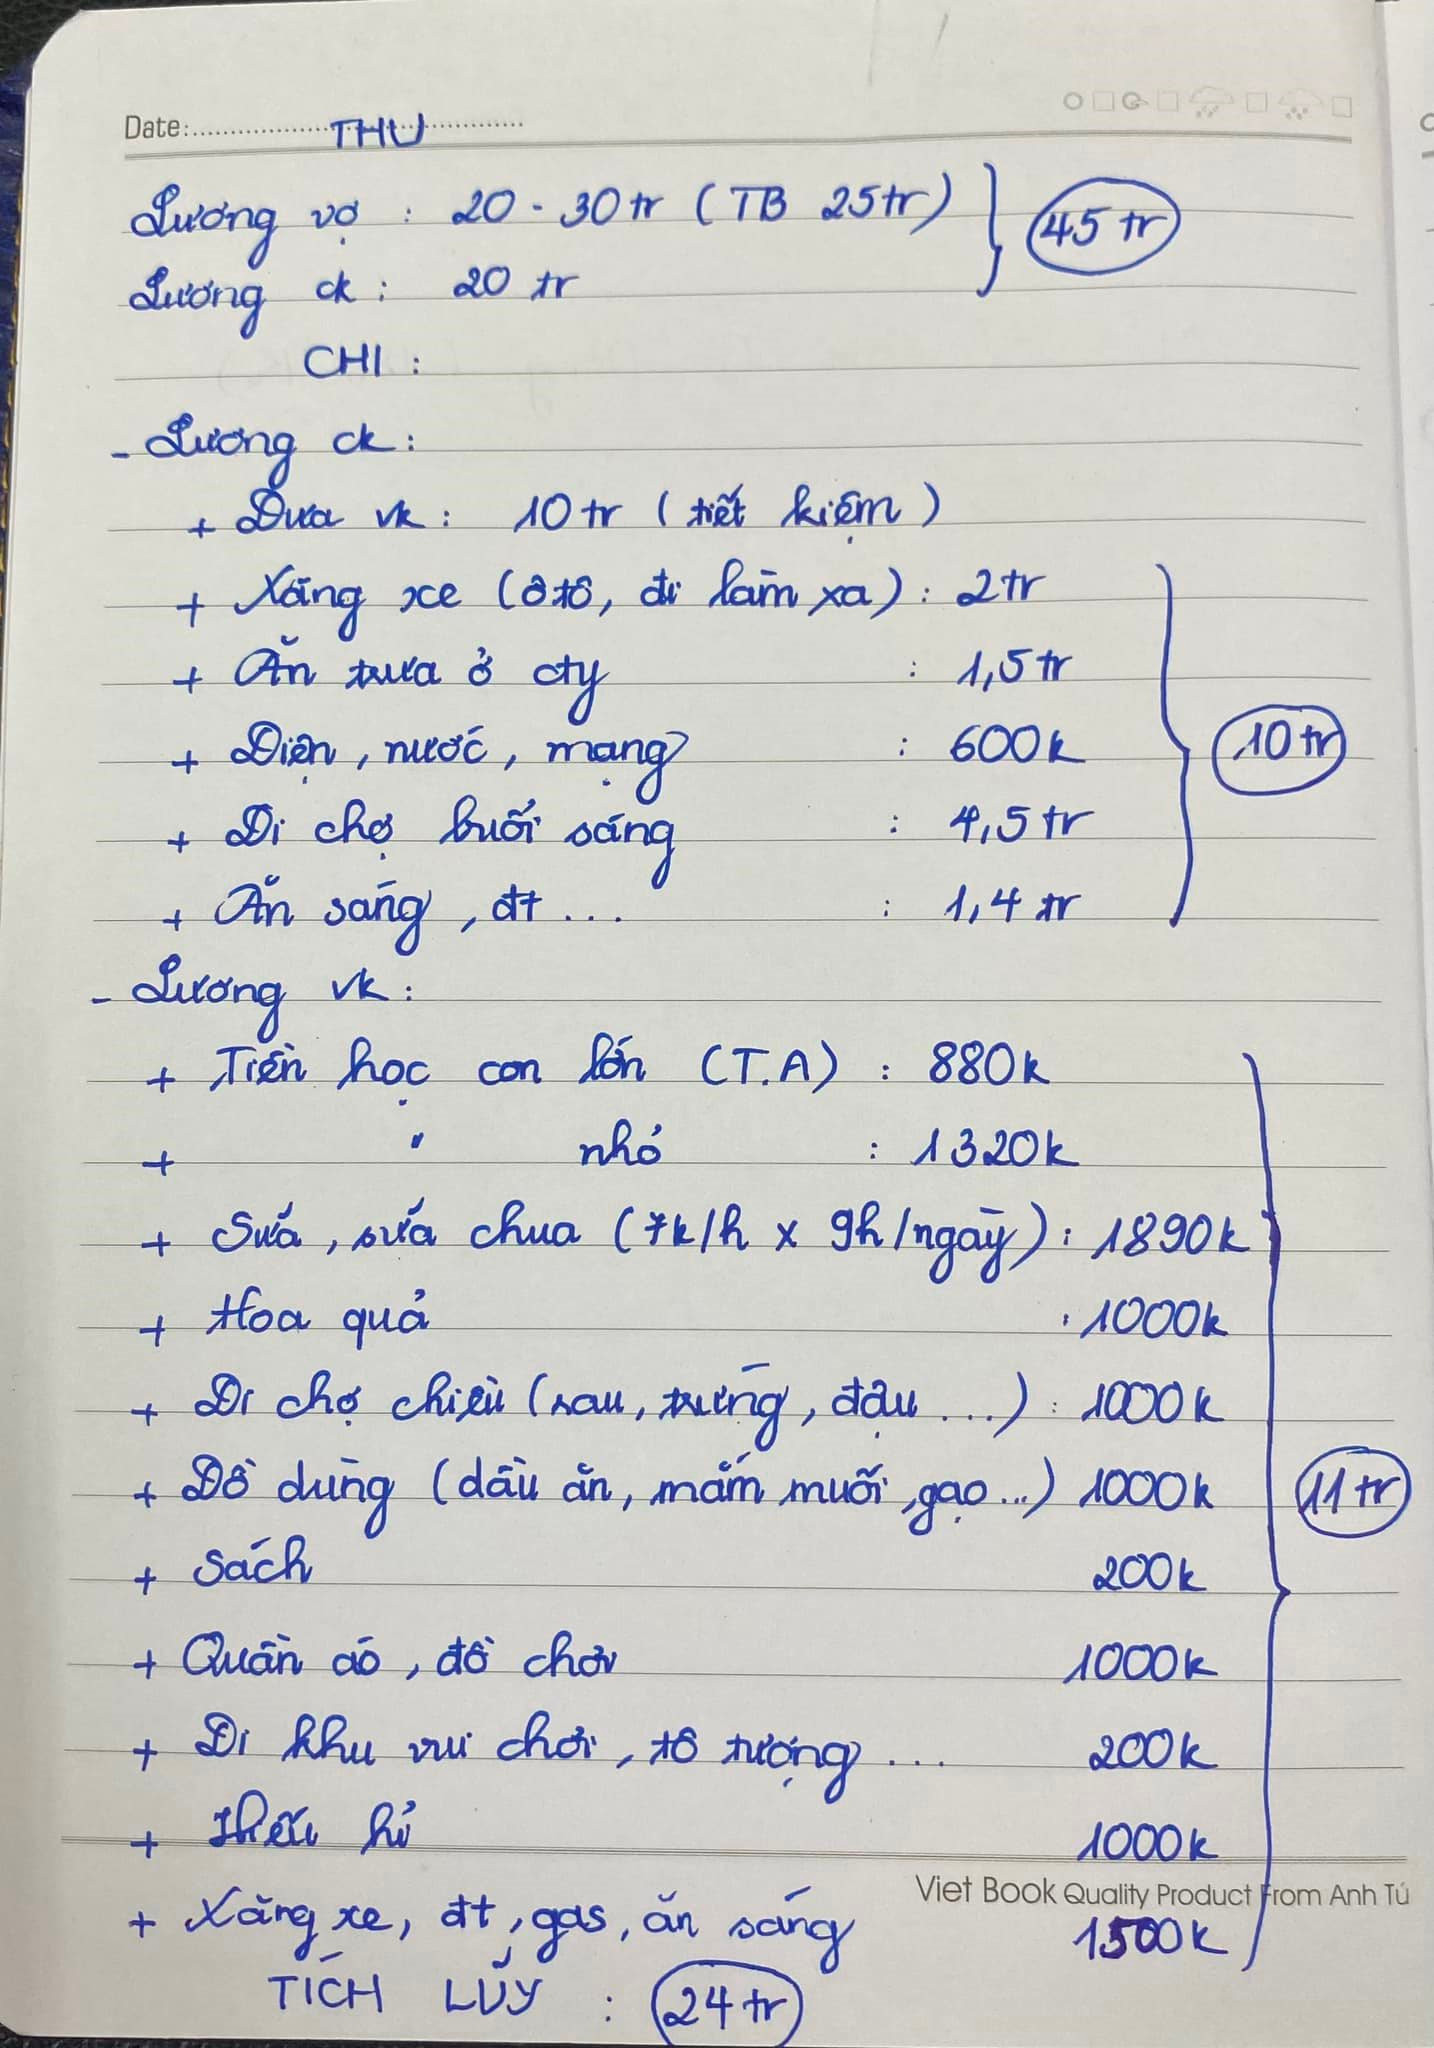 Date: THU
Lương vợ : 20 - 30 tr ( TB 25 tr ) 45 tr
Lương ck : 20 tr
CHI :
- Lương ck :
+ Đưa vk : 10 tr ( tiết kiệm )
+ Xăng xe (ô tô, đi làm xa) : 2 tr
+ Ăn trưa ở cty : 1,5 tr
+ Điện , nước , mạng : 600k 10 tr
+ Đi chợ buổi sáng : 4,5 tr
+ Ăn sáng , đt ... : 1,4 tr
- Lương vk :
+ Tiền học con lớn (T.A) : 880k
+ " nhỏ : 1320k
+ Sữa , sữa chua (7k/h x 9h/ngày) : 1890k
+ Hoa quả : 1000k
+ Đi chợ chiều (rau, trứng, đậu ...) : 1000k
+ Đồ dùng (dầu ăn, mắm muối, gạo ...) 1000k 11 tr
+ Sách 200k
+ Quần áo , đồ chơi 1000k
+ Đi khu vui chơi, tô tượng ... 200k
+ Hiếu hỉ 1000k
Viet Book Quality Product From Anh Tú
+ Xăng xe, đt, gas, ăn sáng 1500k
TÍCH LŨY : 24 tr